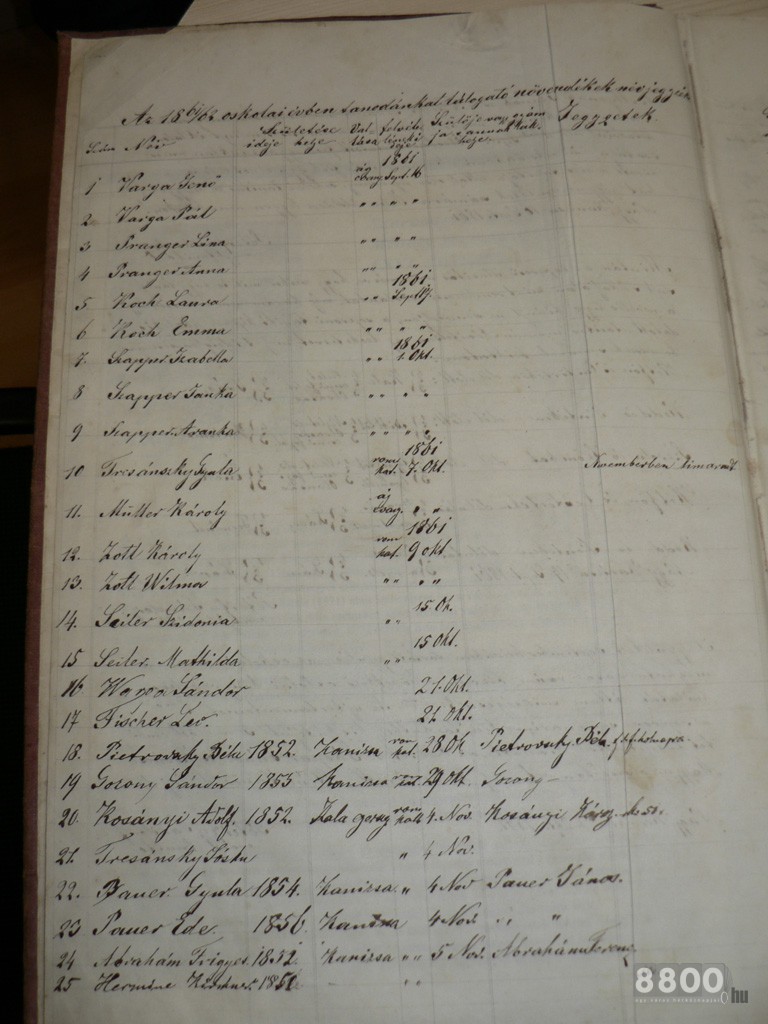 Az 1861/62 oskolai évben tanodánkat látogató növendékek névjegyzéke
Szám Név Születése ideje helye Val- lása felvéte- Szülője vagy gyám- ja s annak lak- helye Jegyzetek
1 Varga Jenő ág evang 1861 Sept. 16
2 Varga Pál " " "
3 Pranger Lina " " "
4 Pranger Anna " " "
5 Koch Laura " 1861 Sept 19.
6 Koch Emma " " "
7. Szapper Izabella " 1861 1. Okt.
8 Szapper Janka " " "
9 Szapper Aranka " " "
10 Trsánszky Gyula rom kat. 1861 7. Okt. Novemberben kimaradt
11. Müller Károly ág Evang. " "
12. Zott Károly rom kat. 1861 9 okt
13. Zott Wilma " " "
14. Seiler Szidonia " 15 Ok.
15 Seiler Mathilda " 15 Okt.
16 Sándor 21. Okt.
17 Fischer Leo. 21 Okt.
18. Pietrovsky Béla 1852. Kanizsa rom kat. 28 Ok Pietrovsky Béla
19 Gozony Sándor 1853 Kanizsa kat. 29 Okt Gozony —
20. Kosányi Adolf. 1852. Zala rom kat 4. Nov. Kosányi
21. Tresánsky " 4 Nov.
22. Pauer Gyula 1854. Kanizsa " 4 Nov Pauer János.
23 Pauer Ede. 1856. Kanizsa 4 Nov. " "
24 Abrahám Frigyes. 1852. Kanizsa " 5 Nov. Abrahám Ferenc
25 Hermine "
8800.hu